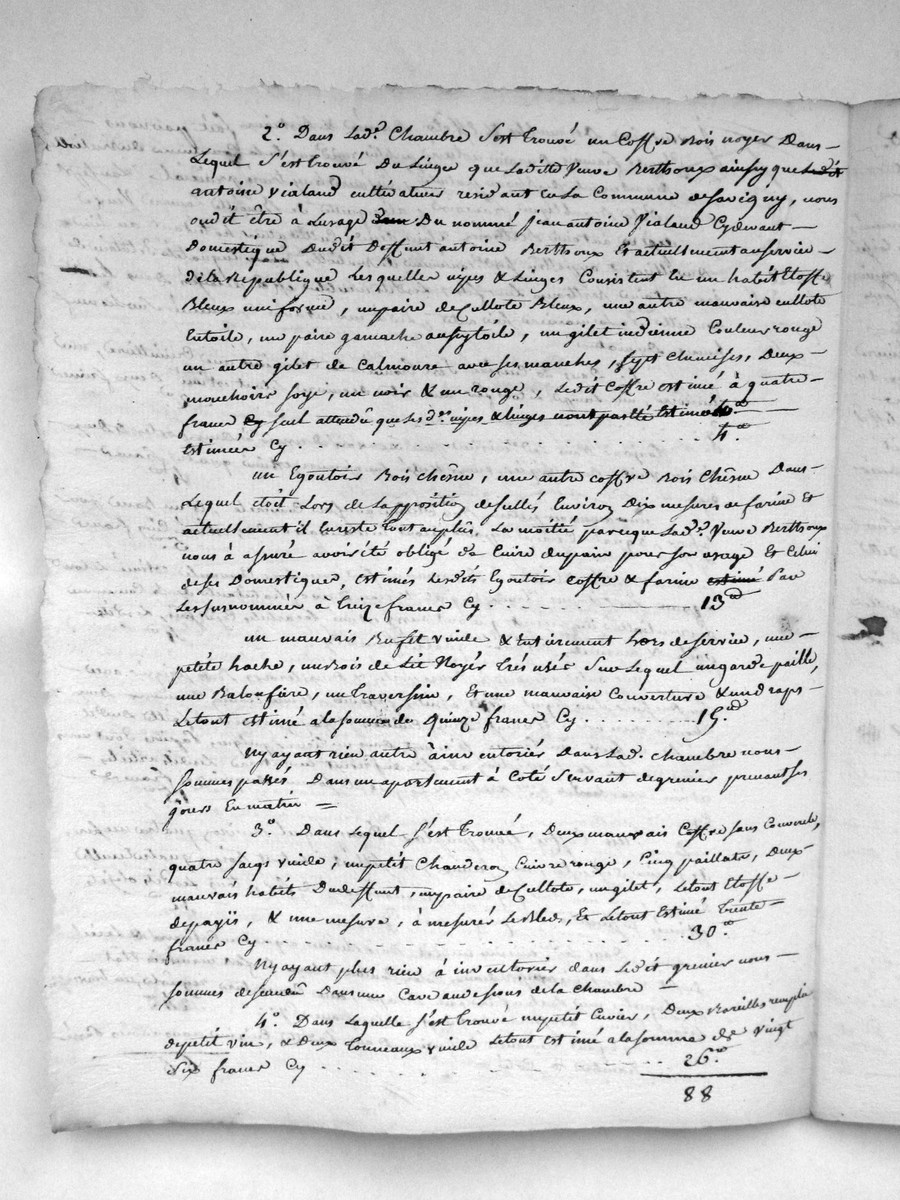 2.° Dans lad.e Chambre s'est trouvé un Coffre Bois noyer Dans
Lequel s'est trouvé Du Linge que Laditte Veuve Berthoux ainsy que Ledit
antoine vialand cultivateur residant en La Commune de savigny, nous
ondit être à Lusage Du nommé Jean antoine Vialand Cydevant
Domestique Dudit Deffunt antoine Berthoux Et actuellement au service
dela Republique Lesquelles nipes & Linges Consistent En un habit Etoffe
Bleux uniforme, un paire de Cullote Bleux, une autre mauvaise cullote
En toile, un paire gamache aussy toile, un gilet indienne Couleur rouge
un autre gilet de Calmoure avec ses manches, sept chemises, Deux
mouchoirs soye, un noir & un rouge, Ledit Coffre estimé à quatre
francs Cy seul attendu que Les d.es nipes & linges nont pas été Estimé 4
Estimées Cy . . . . . . . . . . 4.
un Egoutoir Bois chêne, une autre coffre Bois Chêne Dans
Lequel étoit Lors de Lapposition de sellés Environ Dix mesures de farine Et
actuellement il Enreste tout au plus La moitié parceque Lad.e Veuve Berthoux
nous à assuré avoir été obligé d'en Cuire du pain pour son usage Et Celui
de ses Domestiques, estimés Lesdits Egoutoir coffre & farine estimé Par
Les susnommés à treize francs Cy . . . . . . 13
un mauvais Bufet vuide & Entierement hors de service, une
petite hache, un Bois de Lit Noyér trés usés sur Lequel un garde paille,
une Baloufière, un Traversein, Et une mauvaise Couverture & un draps
Letout estimé a la somme de quinze francs Cy . . . . . 15.
Ny ayant rien autre à inventoriér Dans Lad. chambre nous
sommes passés Dans un apartement à Coté servant de grenier prenant ses
jours En matin =
3.° Dans Lequel s'est trouvé, Deux mauvais Coffre sans Couvercle,
quatre sacqs vuide, un petit Chauderon Cuivre rouge, Cinq paillats, Deux
mauvais habits Du deffunt, un paire de Cullote, un gilet, Letout Etoffe
depayis, & une mesure, à mesurés Le Bled, Et Letout Estimé trente
francs Cy . . . . . . . . . . 30.
Ny ayant plus rien à inventoriér dans Ledit grenier nous
sommes descendu Dans une Cave au dessous de la Chambre =
4.° Dans Laquelle s'est trouvé un petit Cuvier, Deux Bareilles remplis
depetit vin, & Deux Tonneaux vuide Letout estimé a la somme de vingt
six francs Cy . . . . . . . . . 26.
88